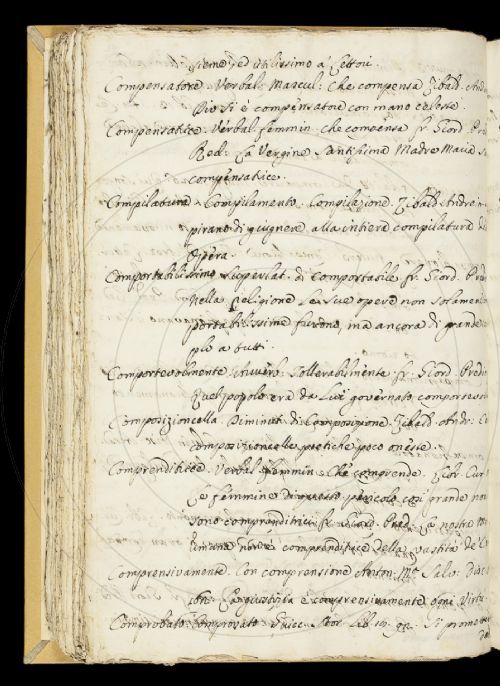 sieme, ed utilissimo a' Lettori.
Compensatore. Verbal. Mascul. Che compensa Zibald. Andr
Dio si è compensatore con mano celeste.
Compensatrice. Verbal femmin. che compensa fr. Giord. Pred
Red. La Vergine Santissima Madre Maria
compensatrice.
Compilatura. Compilamento. Compilazione. Zibald. Andr.
di giugnere alla intiera compilatura
Opera.
Comportabilissimo Superlat. di Comportabile fr. Giord. Pred
Nella Religione le sue opere non solamente
portabilissime furono, ma ancora di grande
plo a tutti.
Comportevolmente. Avverb. Sollerabilmente fr. Giord. Pred
Quel popolo era da lui governato comportevol
Composizioncella. Diminut. di Composizione. Zibald. Andr.
composizioncelle poetiche poco oneste.
Comprenditrice. Verbal femmin. Che comprende.
Le femmine di questo pericolo così grande non
sono comprenditrici fr. Giord. Pred. La nostra
umana non è comprenditrice della vastità de'
Comprensivamente. Con comprensione Anton. M.ª Salv. Disc
La giustizia è comprensivamente ogni Virtù
Comprobato. Comprovato. Guicc. Stor. Lib. Si promette